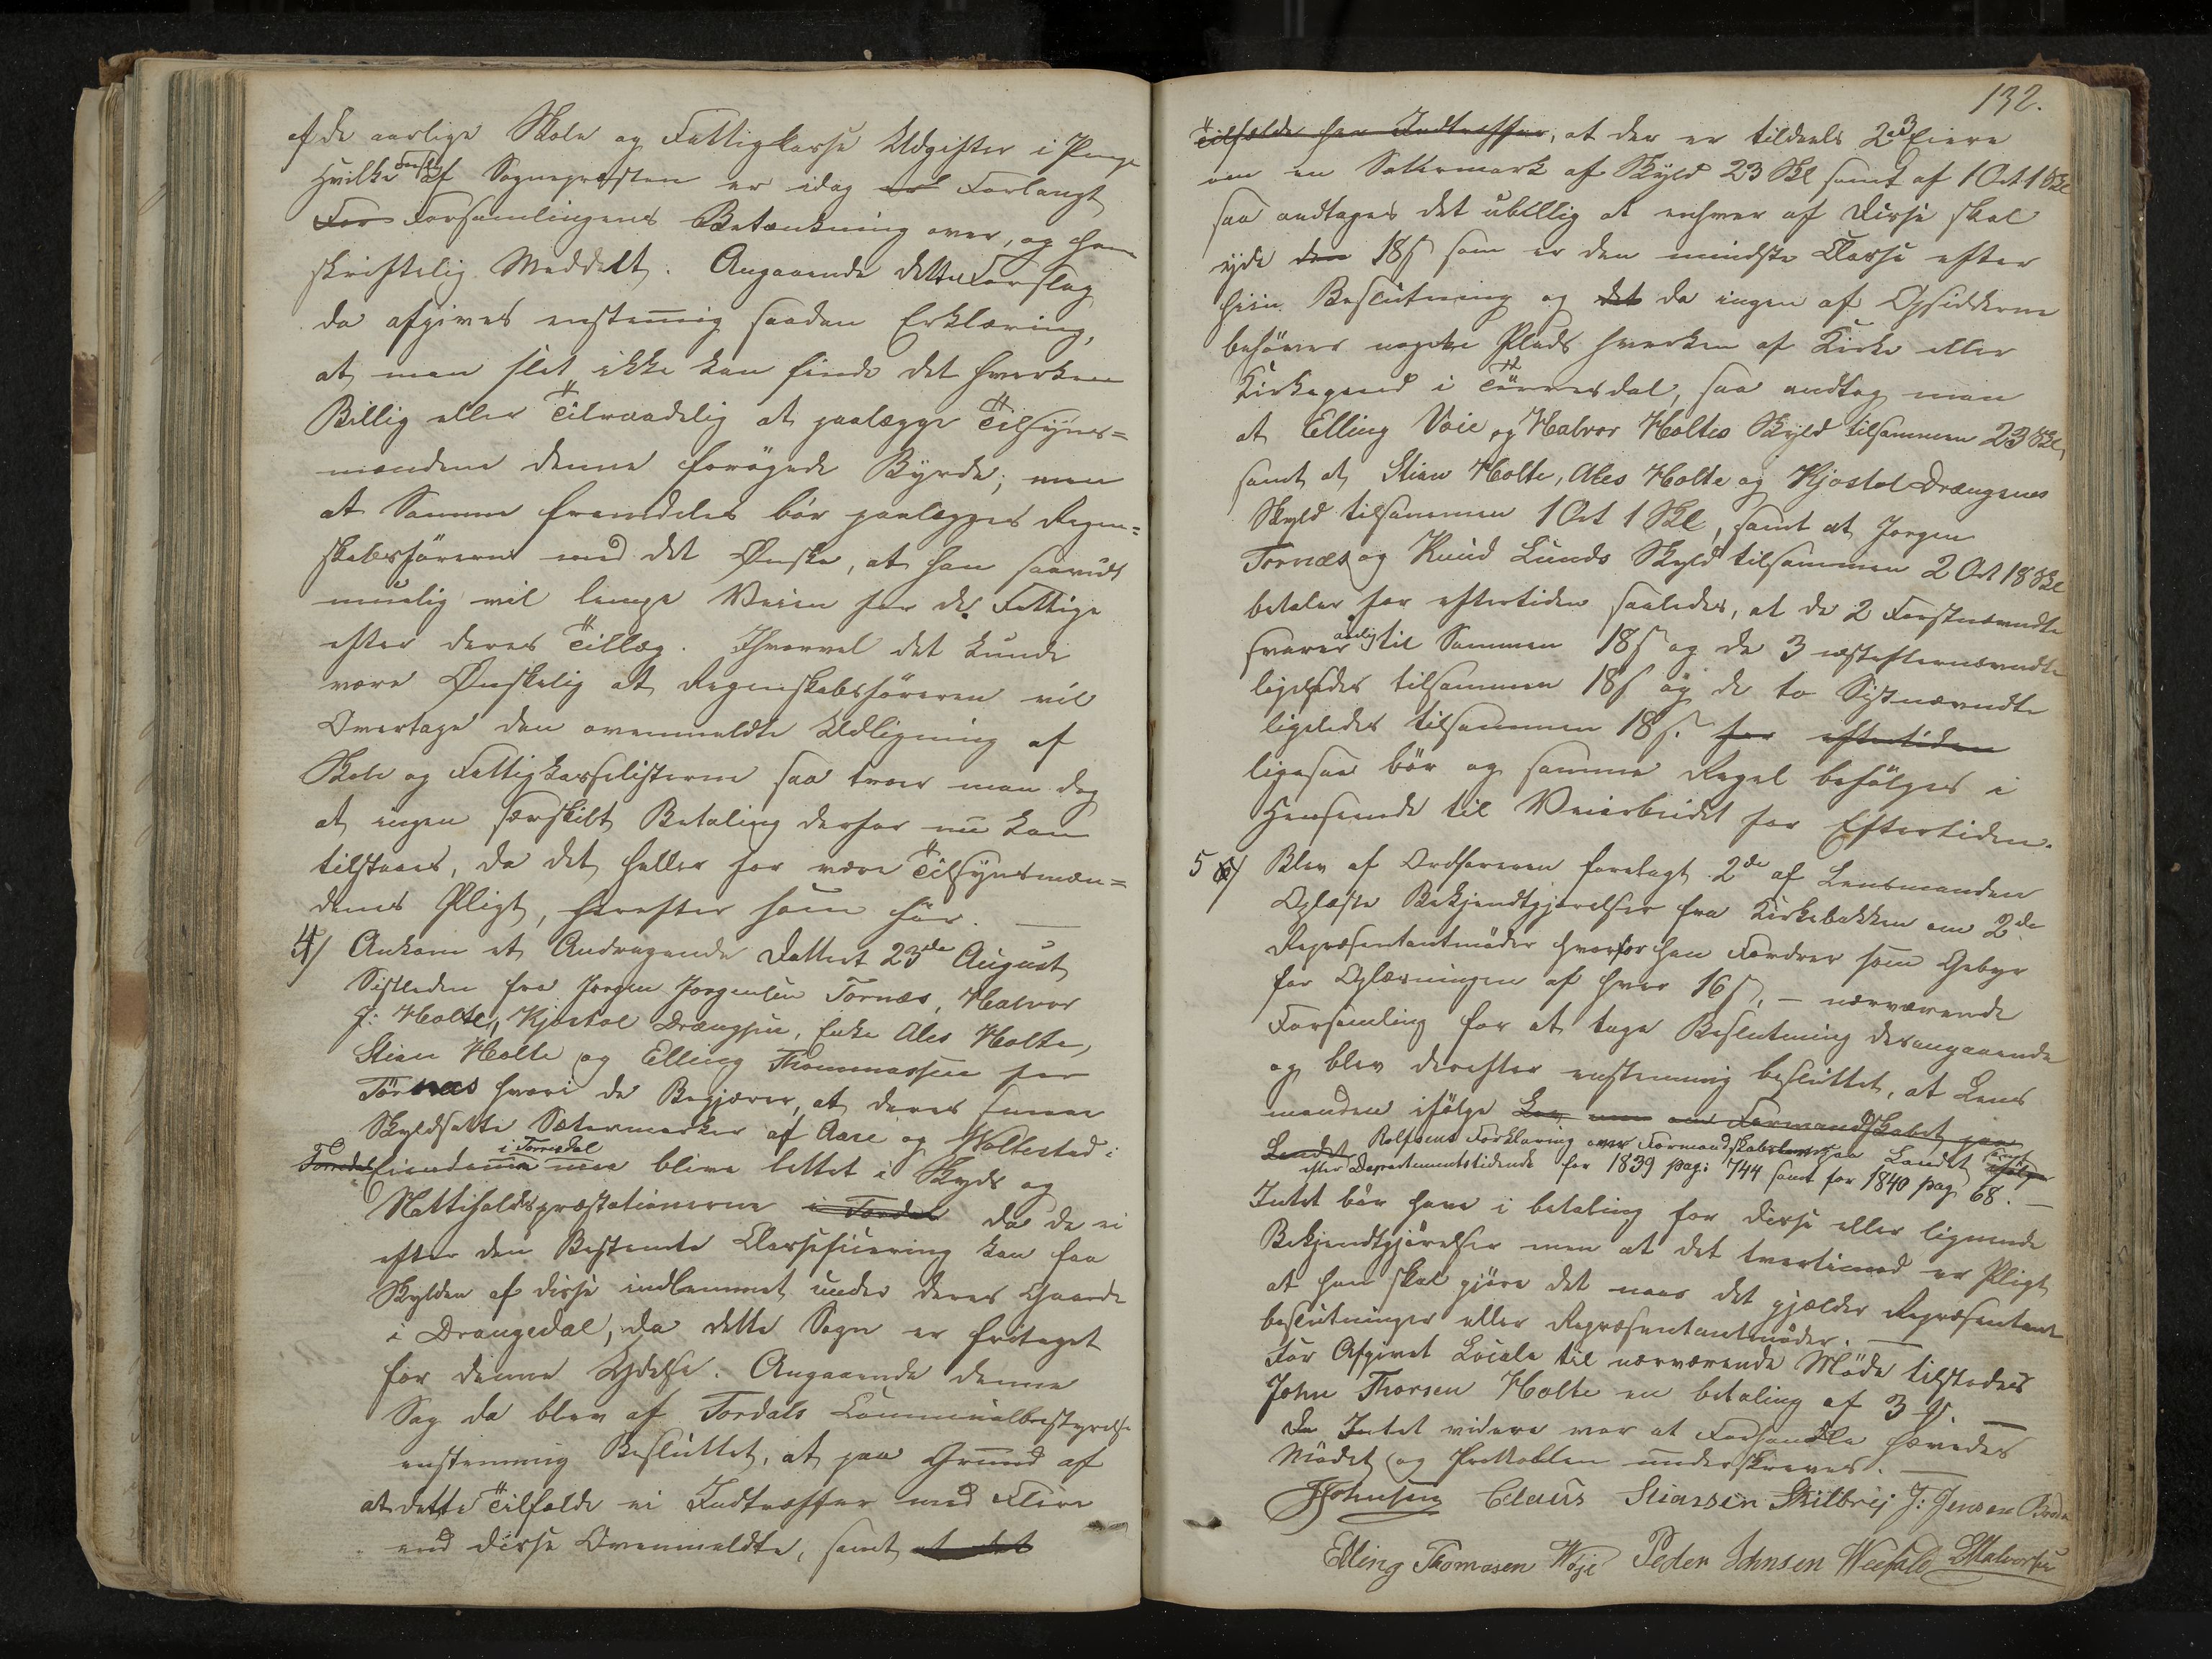 af de aarlige Skole og Fattigkasse Udgifter i Penge
hvilke Forslag af Sognepræsten er idag Forlangt
Forsamlingens Betænkning over, og ham
skriftelig Meddelt. Angaaende dette Forslag
da afgives enstemig saadan Erklæring,
at man slet ikke kan finde det hverken
Billig eller Tilraadelig at paalægge Tilsyns=
mændene denne forøgede Byrde; men
at Samme fremdeles bør paalægges Regn=
skabsføreren med det Ønske, at han saavidt
muelig vil lempe Veien for de Fattige
efter deres Tillæg. Ihvorvel det kunde
være Ønskelig at Regnskabsføreren vil
Overtage den ovenmeldte Udligning af
Skole og Fattigkasselisterne saa troer man dog
at ingen særskilt Betaling derfor nu kan
tilstaaes, da det heller før være Tilsynsmæn=
denes Pligt, herefter som før. —
4/ Ankom et Andragende Datteret 23de August
Sistleden fra Jørgen Jørgensen Tornæs, Halvor
J: Holte, Kjøstol Drængsen, Enke Ales Holte,
Stian Holte og Elling Thommassen for
Tørnæs hvori de Begjærer, at deres smaae
Skyldsatte Sætermarker af Aase og Woltestad i
Tørredal Eiendomme i Torresdal maa blive lettet i Skyds og
Nattiholdspræstationerne i Tordal da de ei
efter den Bestemte Classificering kan faa
Skylden af disse indlemmet under deres Gaarde
i Drangedal, da dette Sogn er fritaget
for denne Ydelse. Angaaende denne
Sag da blev af Tordals Communalbestyrelse
enstemmig Besluttet, at paa Grund af
at dette Tilfælde ei Indtræffer med Flere
end disse Ovenmeldte, samt at det
132.
Tilfælde her Indtræffer, at der er tildeels 2 a 3 Eiere
om en Sætermark af Skyld 23 Skl samt af 1 Ort 1 Skl
saa andtages det ubillig at enhver af disse skal
yde den 18 s som er den mindste Classe efter
hiin Beslutning og det da ingen af Opsidderne
behøver nogen Plads hverken af Kirke eller
Kirkegaard i Tørresdal, saa andtog man
at Elling Voie og Halvor Holtes Skyld tilsammen 23 Skl,
samt at Stian Holte, Ales Holte og Kjøstol Drængsens
Skyld tilsammen 1 Ort 1 Skl, samt at Jørgen
Tornæs og Knud Lunds Skyld tilsammen 2 Ort 18 Skl
betaler for eftertiden saaledes, at de 2 Førstnævndte
svarer aarlig til Sammen 18 s og de 3 næstefternævndte
ligeledes tilsammen 18 s og de to Sistnævndte
ligeledes tilsammen 18 s. for eftertiden
ligesaa bør og samme Regel befølges i
Henseende til Veiarbeidet for Eftertiden.
5/ Blev af Ordføreren forelagt 2de af Lensmanden
Oplæste Bekjendtgjørelser fra Kirkebakken om 2de
Repræsentantmøder hvorfor han Fordrer som Gebyr
for Oplæsningen af hver 16 s, — nærværende
Forsamling for at tage Beslutning desangaaende
og blev derefter enstemmig besluttet, at Lens
manden ifølge Lov om Formandskabet paa
Landet Rolfsens Forklaring over Formandskabsloven paa Landet samt
efter Departementstidende for 1839 pag: 744 samt for 1840 pag 68. —
Intet bør have i betaling for disse eller lignende
Bekjendtgjørelser men at det tvertimod er Pligt
at han skal gjøre det naar det gjælder Repræsentant
beslutninger eller Repræsentantmøder. —
For Afgivet Locale til nærværende Møde tilstodes
John Thorsen Holte en betaling af 3 —
Da Intet videre var at Forhandle hævedes
Mødet og Protokollen underskreves. —
J Johnsen Claus Stiansen Skilbrej J: Jensen
Elling Thomasen Woje Peder Johnsen Weefald E Halvorsen